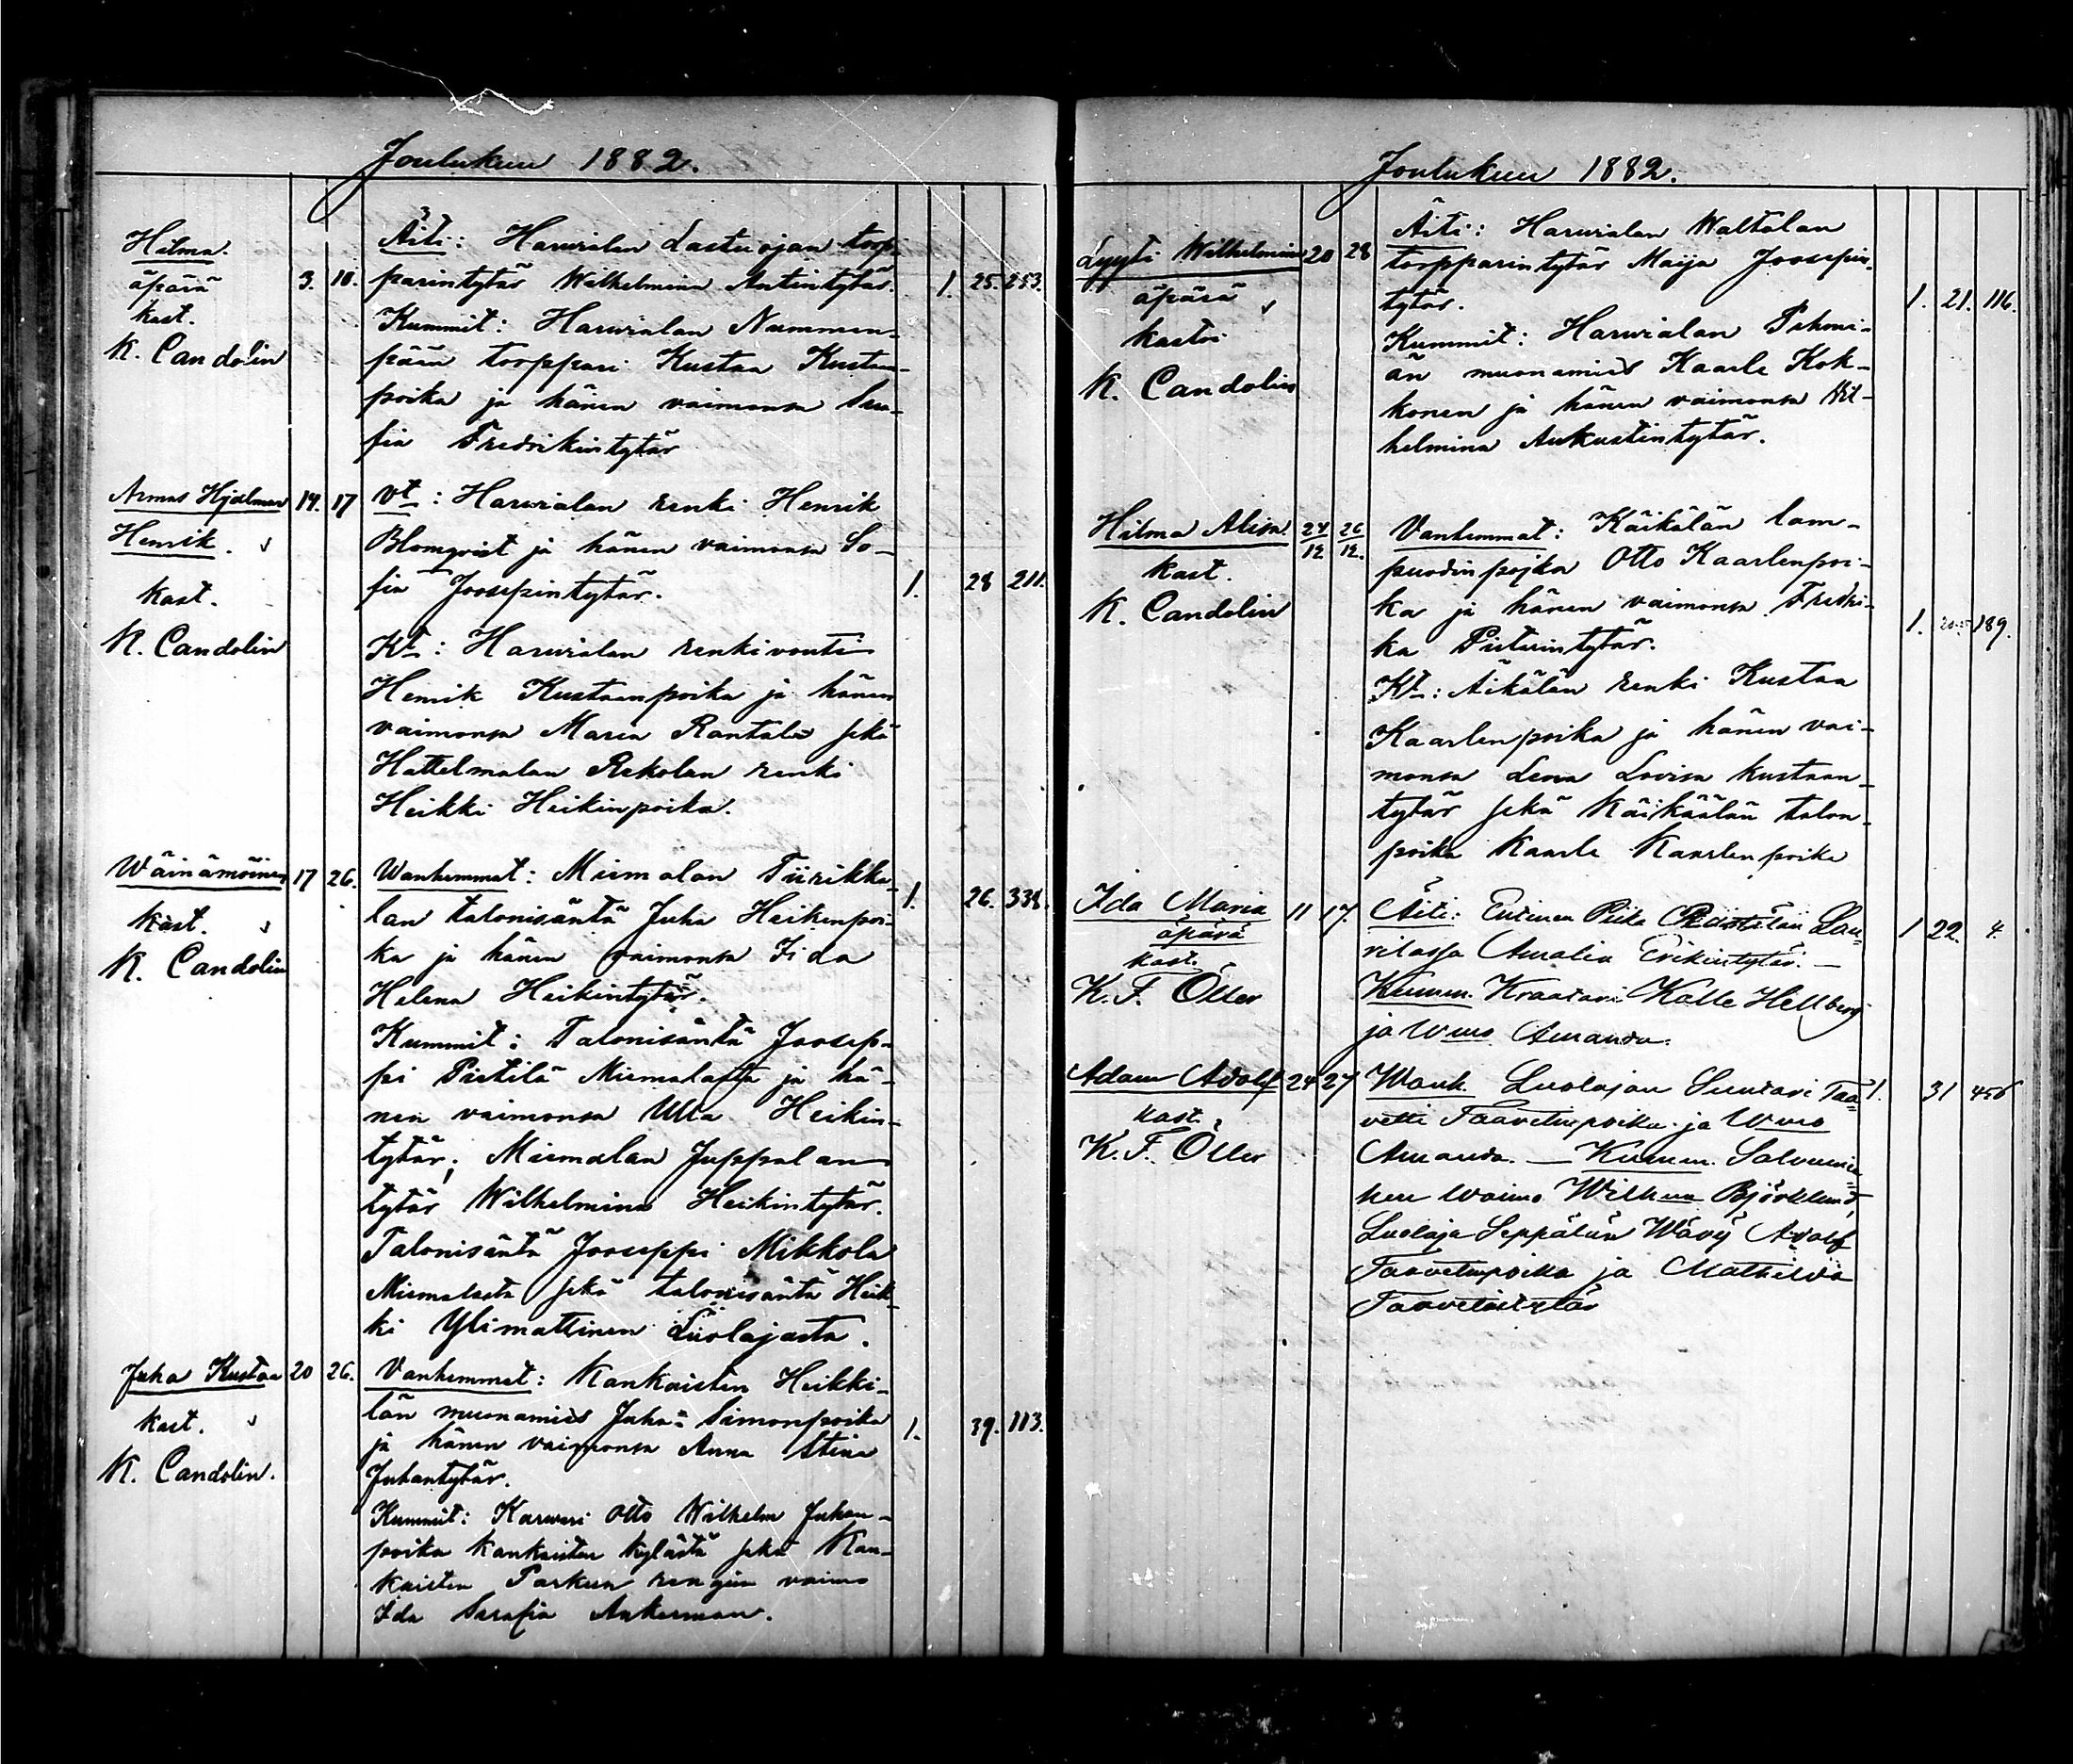 Joulukuu 1882.
Hilma.
äpärä
kast.
K. Candolin
3. 10.
Äiti: Harwialan Lastuojan torp-
parintytär Wilhelmina Antintytär.
1. 25. 253.
Kummit: Harwialan Nummen-
pään torppari Kustaa Kustaan-
poika ja hänen vaimonsa Sera-
fia Fredrikintytär
Armas Hjalmar
Henrik.
kast.
K. Candolin
14. 17
Vt: Harwialan renki Henrik
Blomqvist ja hänen vaimonsa So-
fia Joosepintytär.
1. 28 211.
Kt: Harwialan renkivouti
Henrik Kustaanpoika ja hänen
vaimonsa Maria Rantala sekä
Hattelmalan Rekolan renki
Heikki Heikinpoika.
Wäinämöinen
kast.
K. Candolin
17 26.
Wanhemmat: Miemalan Tiirikka-
lan talonisäntä Juha Heikinpoi-
ka ja hänen vaimonsa Iida
Helena Heikintytär.
1. 26. 338.
Kummit: Talonisäntä Joosep-
pi Pietilä Miemalasta ja hä-
nen vaimonsa Ulla Heikin-
tytär; Miemalan Juppalan
tytär Wilhelmina Heikintytär.
Talonisäntä Jooseppi Mikkola
Miemalasta sekä talonisäntä Heik-
ki Ylimattinen Luolajasta.
Juha Kustaa
kast.
K. Candolin.
20 26.
Vanhemmat: Kankaisten Heikki-
län muonamies Juha Simonpoika
ja hänen vaimonsa Anna Stina
Juhantytär.
1. 39. 113.
Kummit: Karwari Otto Wilhelm Juhan-
poika Kankaisten kylästä sekä Kan-
kaisten Parkun rengin vaimo
Ida Serafia Ankerman.
Joulukuu 1882.
Lyyti Wilhelmina
äpärä
kastoi
K. Candolin
20 28
Äiti: Harwialan Waltalan
torpparintytär Maija Joosepin-
tytär.
1. 21. 116.
Kummit: Harwialan
än muonamies Kaarle Kok-
konen ja hänen vaimonsa Wil-
helmina Aukustintytär.
Hilma Alisa.
kast.
K. Candolin
24/12 26/12.
Vanhemmat: Käikälän lam-
puodinpojka Otto Kaarlenpoi-
ka ja hänen vaimonsa Fredri-
ka Pieturintytär.
1. 189.
Kt: Äikälän renki Kustaa
Kaarlenpoika ja hänen vai-
monsa Leena Lovisa Kustaan-
tytär sekä Käikäälän talon-
poika Kaarle Kaarlenpoika
Ida Maria
äpärä
kast.
K. F. Öller
11 17.
Äiti: Entinen Piika Lau-
rilassa Amalia Erikintytär.
1 22. 4.
Kumm. Kraatari Kalle Hellberg
ja Wmo Amanda.
Adam Adolf
kast.
K. F. Öller
24 27
Wanh. Luolajan Suutari Taa-
vetti Taavetinpoika ja Wmo
Amanda. — Kumm.
1. 31 456
nen Waimo Wilhmina Björklund,
Luolaja Seppälän Wävy Adolf
Taavetinpoika ja Mathilda
Taavetintytär